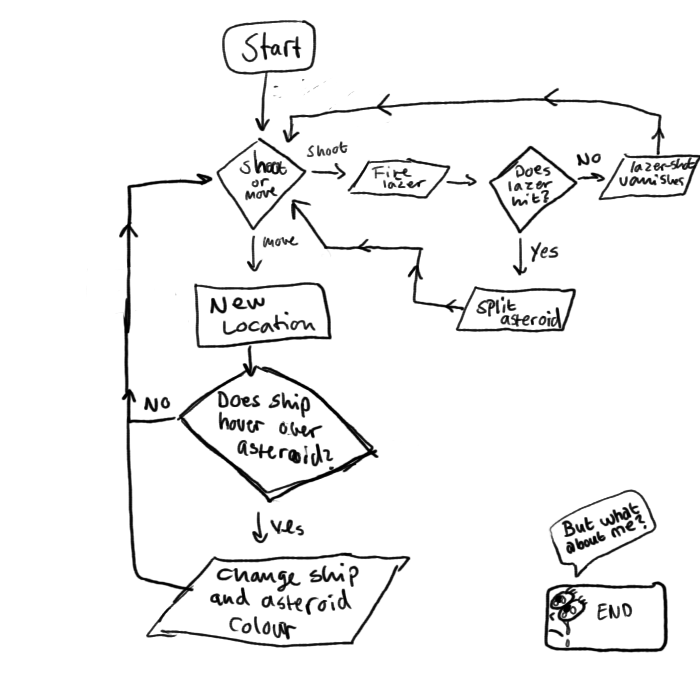 Start
shoot
or
move
shoot
Fire
lazer
Does
lazer
hit?
NO
lazer-shot
vanishes
Yes
split
asteroid
move
New
Location
Does ship
hover over
asteroid?
NO
Yes
Change ship
and asteroid
colour
But what
about me?
END